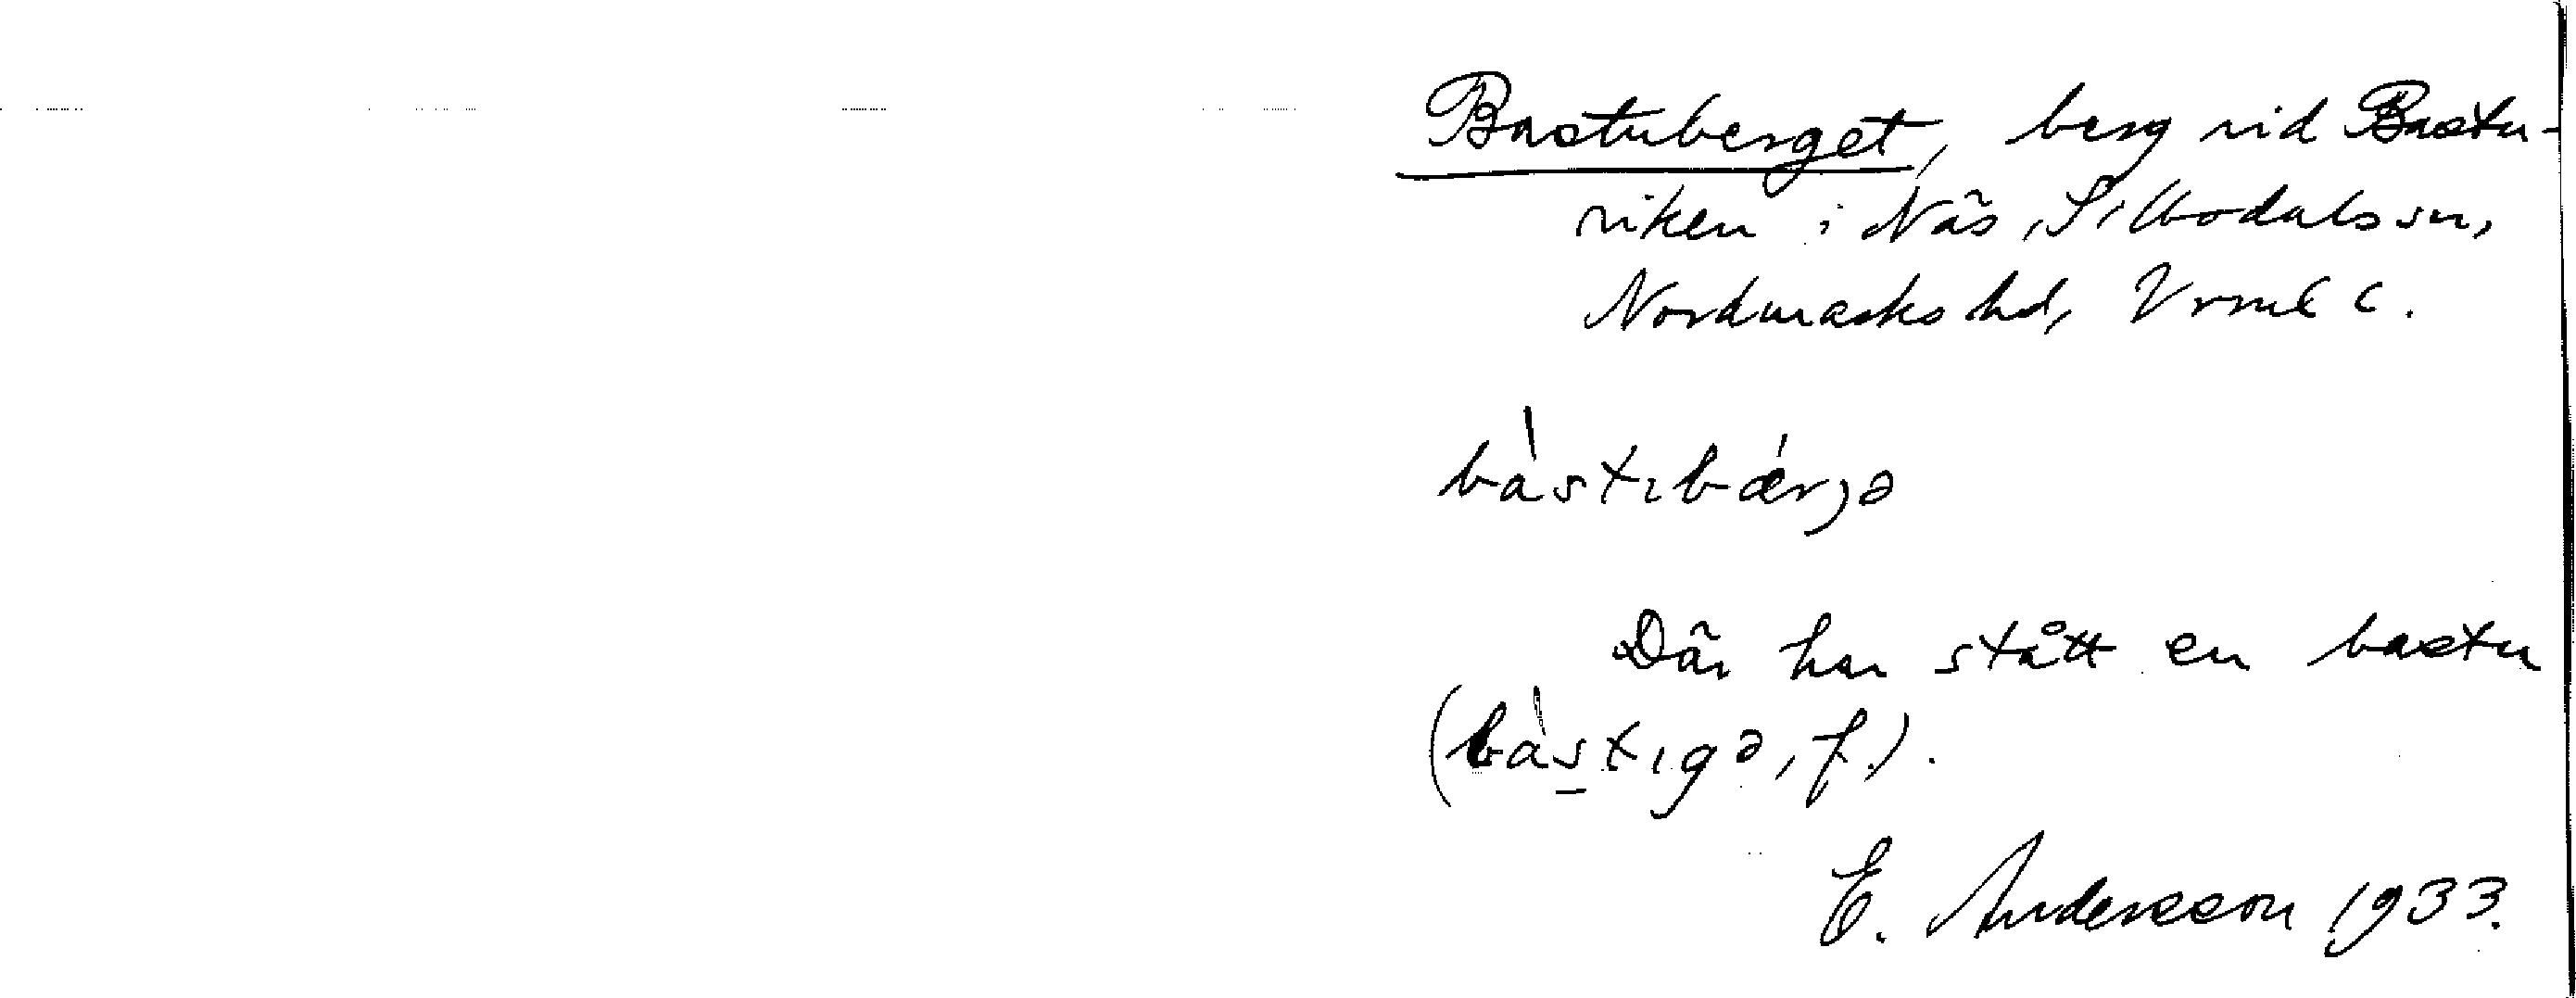 Bastuberget, berg vid Bastu-
viken i Näs, Silbodals sn,
Nordmarks hd, Vrml c.
bàstɩbǽrjə
Där har stått en bastu
(bàstɩgə, f.).
E. Andersson 1933.